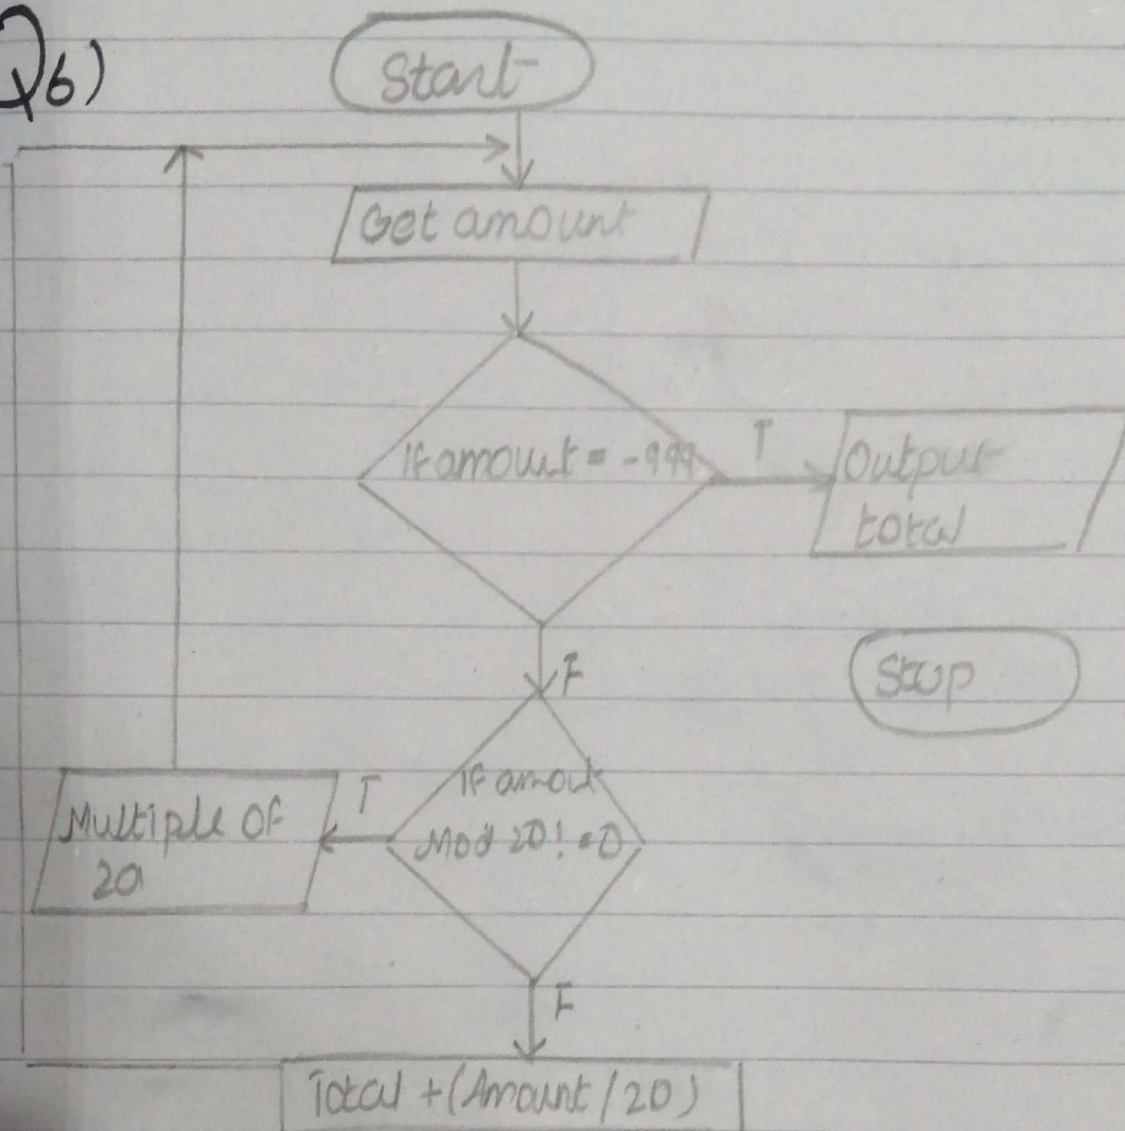 Q6)
Start
Get amount
If amount = -999
T
Output
total
F
Stop
If amout
Mod 20! = 0
T
Multiple of
20
F
Total + (Amount / 20)